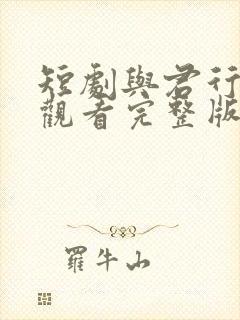 短劇與君行
觀看完整版
羅牛山